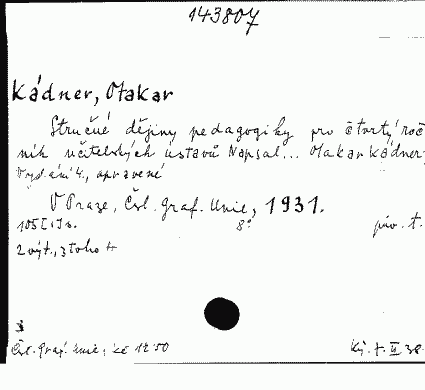 143807
Kádner, Otakar
Stručné dějiny pedagogiky pro čtvrtý roč
ník učitelských ústavů Napsal... Otakar Kádner,
Vydání 4., opravené
V Praze, Čsl. graf. Unie, 1931.
105 8° pův. t.
2 výt., z toho
Čsl. Graf. Unie, Kč 12.50 38.